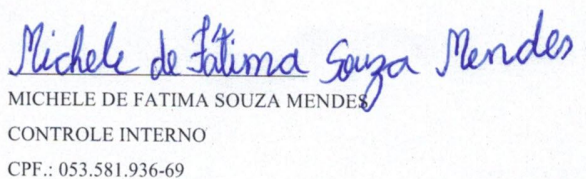 Michele de Fátima Souza Mendes
MICHELE DE FATIMA SOUZA MENDES
CONTROLE INTERNO
CPF.: 053.581.936-69